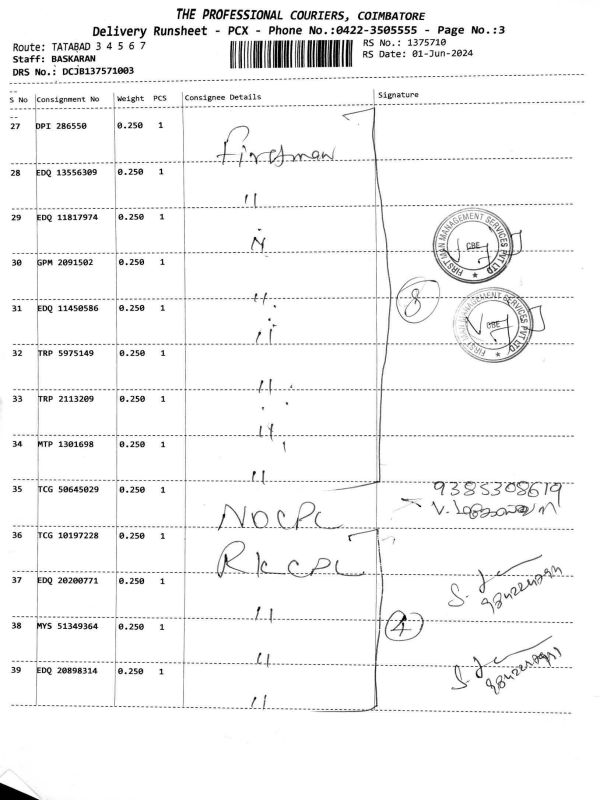 THE PROFESSIONAL COURIERS, COIMBATORE
Delivery Runsheet - PCX - Phone No.:0422-3505555 - Page No.:3
Route: TATABAD 3 4 5 6 7
RS No.: 1375710
Staff: BASKARAN
RS Date: 01-Jun-2024
DRS No.: DCJB137571003
S No Consignment No Weight PCS Consignee Details Signature
27 DPI 286550 0.250 1
Firstman
28 EDQ 13556309 0.250 1
"
29 EDQ 11817974 0.250 1
"
FIRST MAN MANAGEMENT SERVICES PVT LTD
CBE
30 GPM 2091502 0.250 1
"
8
31 EDQ 11450586 0.250 1
"
FIRST MAN MANAGEMENT SERVICES PVT LTD
CBE
32 TRP 5975149 0.250 1
"
33 TRP 2113209 0.250 1
"
34 MTP 1301698 0.250 1
"
35 TCG 50645029 0.250 1
9385308619
NDCPL
36 TCG 10197228 0.250 1
RKCPL
37 EDQ 20200771 0.250 1
"
38 MYS 51349364 0.250 1
4
"
39 EDQ 20898314 0.250 1
"